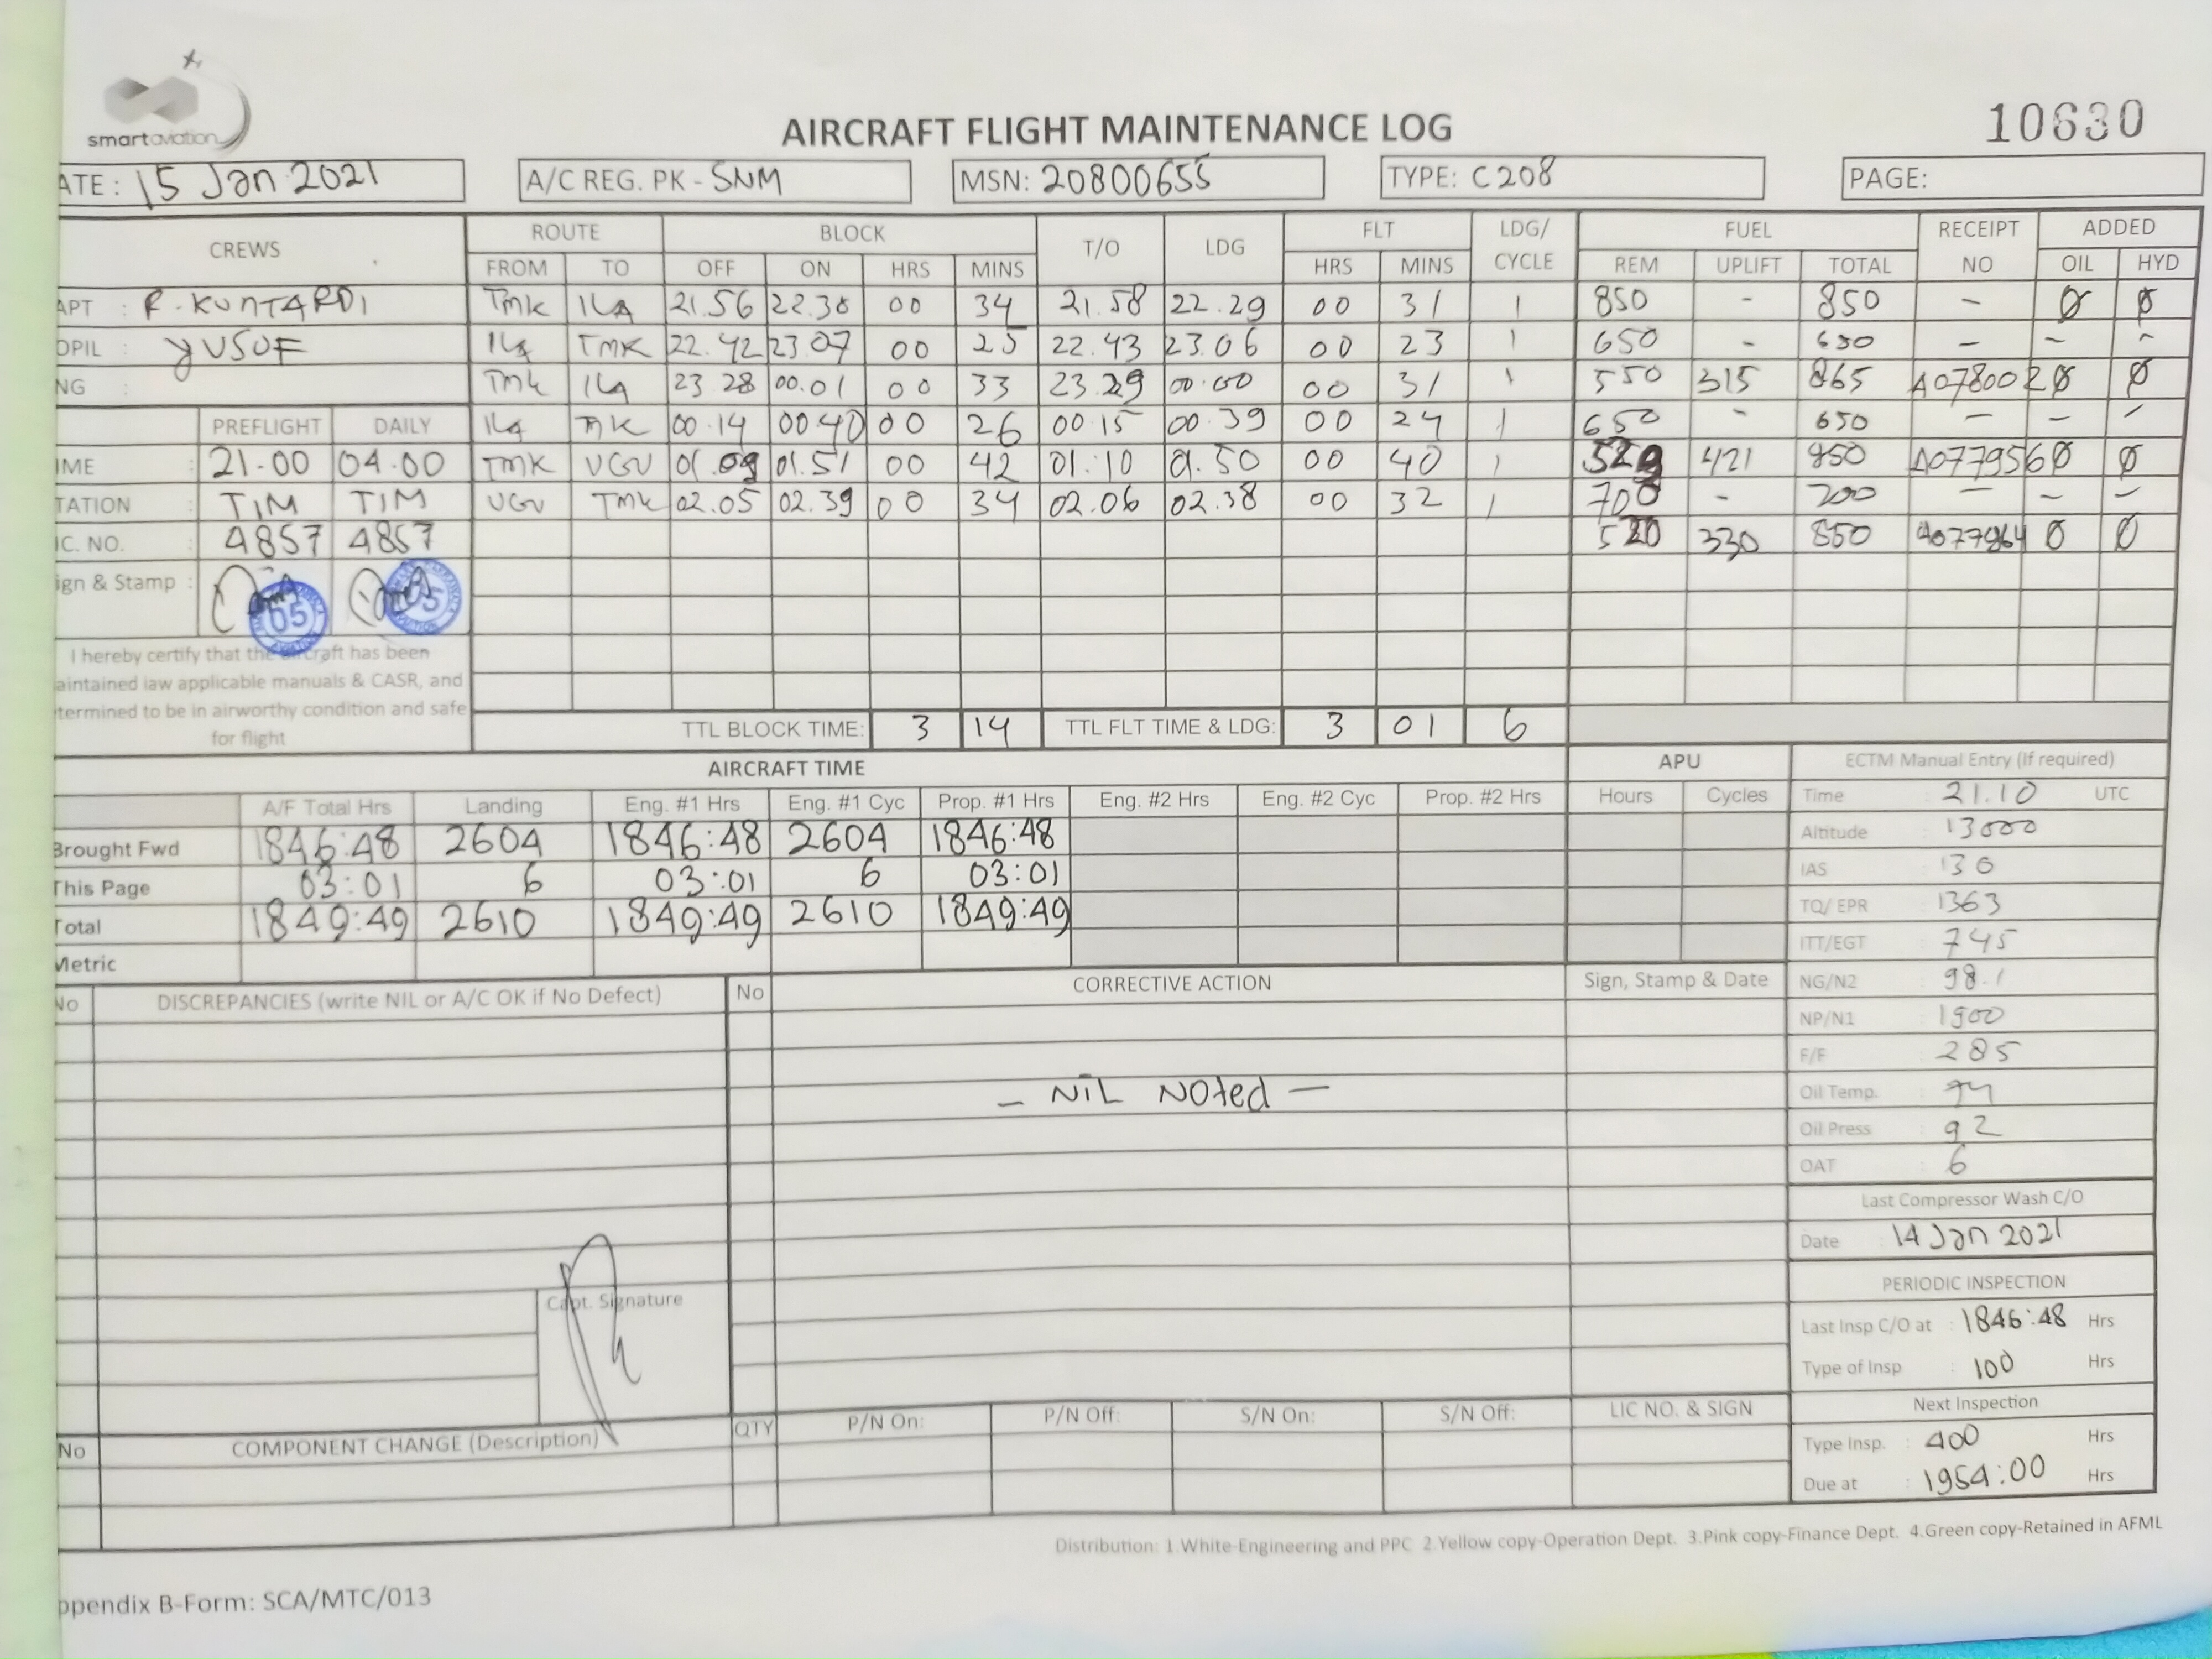 smart aviation
AIRCRAFT FLIGHT MAINTENANCE LOG
10630
ATE : 15 Jan 2021 A/C REG. PK - SNM MSN: 20800655 TYPE: C208 PAGE:
CREWS ROUTE BLOCK T/O LDG FLT LDG/ CYCLE FUEL RECEIPT NO ADDED
FROM TO OFF ON HRS MINS HRS MINS REM UPLIFT TOTAL OIL HYD
APT : R. KUNTARDI TMK ILA 21.56 22.30 00 34 21.58 22.29 00 31 1 850 - 850 - Ø Ø
OPIL : YUSUF ILA TMK 22.42 23.07 00 25 22.43 23.06 00 23 1 650 - 650 - - -
NG : TMK ILA 23.28 00.01 00 33 23.29 00.00 00 31 1 550 315 865 A078002 Ø Ø
PREFLIGHT DAILY ILA TMK 00.14 00.40 00 26 00.15 00.39 00 24 1 650 - 650 - - -
IME : 21.00 04.00 TMK UGU 01.09 01.51 00 42 01.10 01.50 00 40 1 529 421 950 A077956 Ø Ø
TATION : TIM TIM UGU TMK 02.05 02.39 00 34 02.06 02.38 00 32 1 700 - 700 - - -
IC. NO. : 4857 4857 520 330 850 A077964 Ø Ø
ign & Stamp :
05
I hereby certify that the aircraft has been
aintained iaw applicable manuals & CASR, and
termined to be in airworthy condition and safe
for flight
TTL BLOCK TIME: 3 14 TTL FLT TIME & LDG: 3 01 6
AIRCRAFT TIME APU ECTM Manual Entry (If required)
A/F Total Hrs Landing Eng. #1 Hrs Eng. #1 Cyc Prop. #1 Hrs Eng. #2 Hrs Eng. #2 Cyc Prop. #2 Hrs Hours Cycles
Brought Fwd 1846:48 2604 1846:48 2604 1846:48
This Page 03:01 6 03:01 6 03:01
Total 1849:49 2610 1849:49 2610 1849:49
Metric
Time : 21.10 UTC
Altitude : 13000
IAS : 130
TQ/ EPR : 1363
ITT/EGT : 745
NG/N2 : 98.1
NP/N1 : 1900
F/F : 285
Oil Temp. :
Oil Press : 92
OAT : 6
Last Compressor Wash C/O
Date : 14 Jan 2021
PERIODIC INSPECTION
Last Insp C/O at : 1846:48 Hrs
Type of Insp : 100 Hrs
Next Inspection
Type Insp. : 400 Hrs
Due at : 1954:00 Hrs
No DISCREPANCIES (write NIL or A/C OK if No Defect) No CORRECTIVE ACTION Sign, Stamp & Date
- NIL Noted -
Capt. Signature
No COMPONENT CHANGE (Description) QTY P/N On: P/N Off: S/N On: S/N Off: LIC NO. & SIGN
Distribution: 1.White-Engineering and PPC 2.Yellow copy-Operation Dept. 3.Pink copy-Finance Dept. 4.Green copy-Retained in AFML
ppendix B-Form: SCA/MTC/013